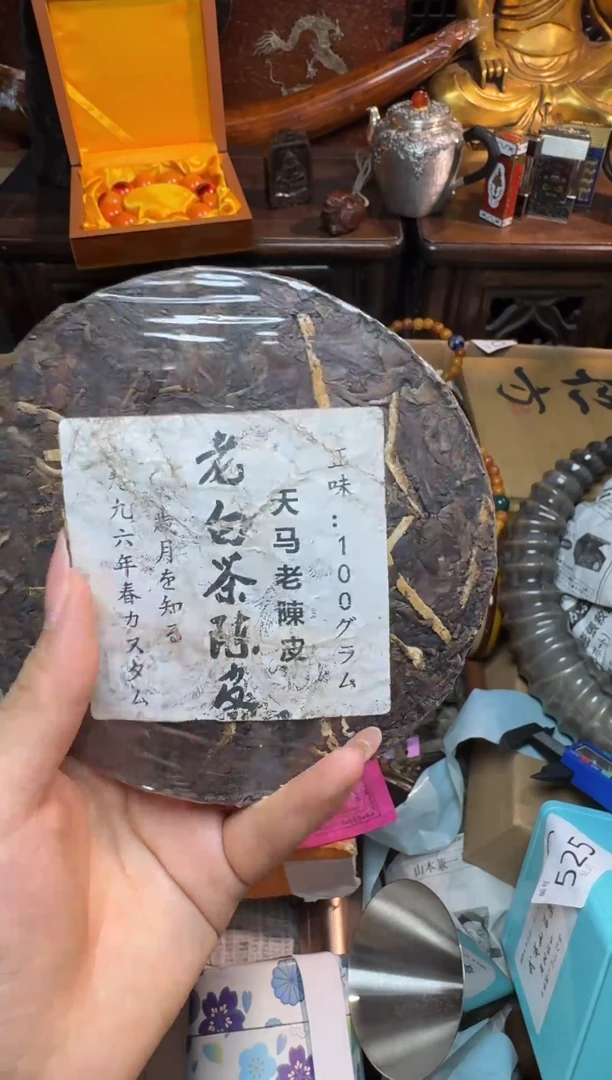 正味:100グラム
天马老陳皮
老白茶陈皮
歳月を知る
九六年春カスタム
525
山本兼